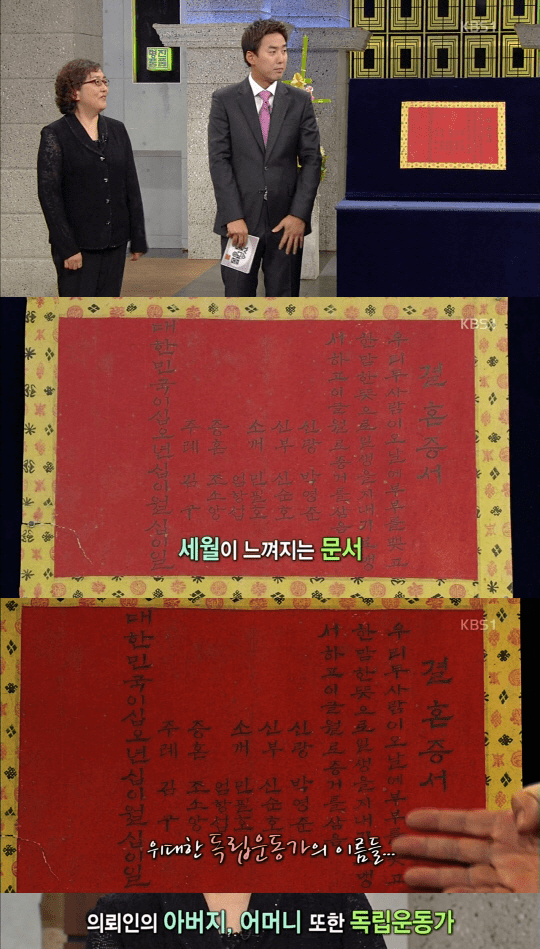 KBS1
KBS1
결혼증서
우리두사람이오날에부부를맺고
한맘한뜻으로일생을지내기로맹
서하고이글월로증거를삼음
신랑 박영준
신부 신순호
소개 민필호
엄항섭
증혼 조소앙
주례 김구
대한민국이십오년십이월십이일
세월이 느껴지는 문서
KBS1
결혼증서
우리두사람이오날에부부를 고
한맘한뜻으로일생을지내 맹
서하고이글월로증거를삼
신랑 박영준
신부 신순호
소개 민필호
엄항섭
증혼 조소앙
주례 김구
대한민국이십오년십이월십이일
위대한 독립운동가의 이름들...
의뢰인의 아버지, 어머니 또한 독립운동가